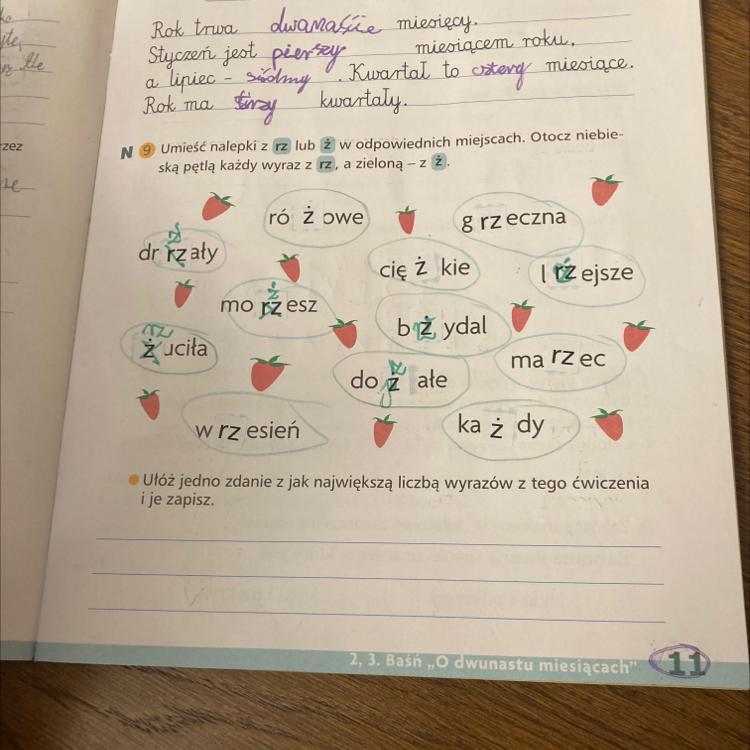 Rok trwa dwanaście miesięcy.
Styczeń jest pierszy miesiącem roku,
a lipiec – siódmy. Kwartał to cztery miesiące.
Rok ma trzy kwartały.
N 9 Umieść nalepki z rz lub ż w odpowiednich miejscach. Otocz niebie-
ską pętlą każdy wyraz z rz, a zieloną – z ż.
ró ż owe
g rz eczna
dr rz ały
cię ż kie
l rz ejsze
mo rz esz
b ż ydal
ż uciła
ma rz ec
do ż ałe
w rz esień
ka ż dy
Ułóż jedno zdanie z jak największą liczbą wyrazów z tego ćwiczenia
i je zapisz.
2, 3. Baśń „O dwunastu miesiącach” 11